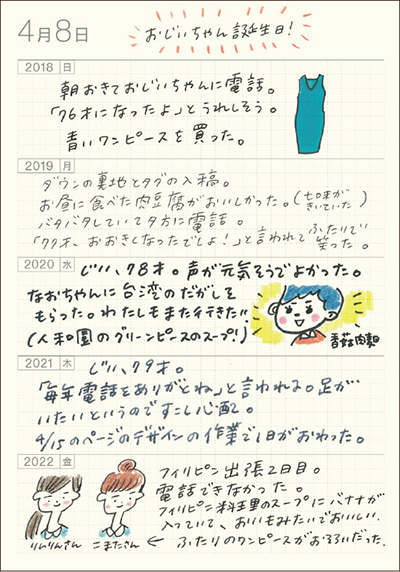 4月8日
おじいちゃん誕生日！
2018 日
朝おきておじいちゃんに電話。
「76才になったよ」とうれしそう。
青いワンピースを買った。
2019 月
ダウンの裏地とタグの入稿。
お昼に食べた肉豆腐がおいしかった。(七味がきいていた)
バタバタしていて夕方に電話。
「77才、おおきくなったでしょ！」と言われてふたりで笑った。
2020 水
じいい、78才。声が元気そうでよかった。
なおちゃんに台湾のだがしを
もらった。わたしもまた行きたい!!
(人和園のグリーンピースのスープ！)
香菇肉麹
2021 木
じいい、79才。
「毎年電話をありがとね」と言われる。足が
いたいというのですこし心配。
4/15のページのデザインの作業で1日がおわった。
2022 金
フィリピン出張2日目。
電話できなかった。
フィリピン料理のスープにバナナが
入っていて、おいもみたいでおいしい。
りんりんさん こまたさん ← ふたりのワンピースがおそろいだった。